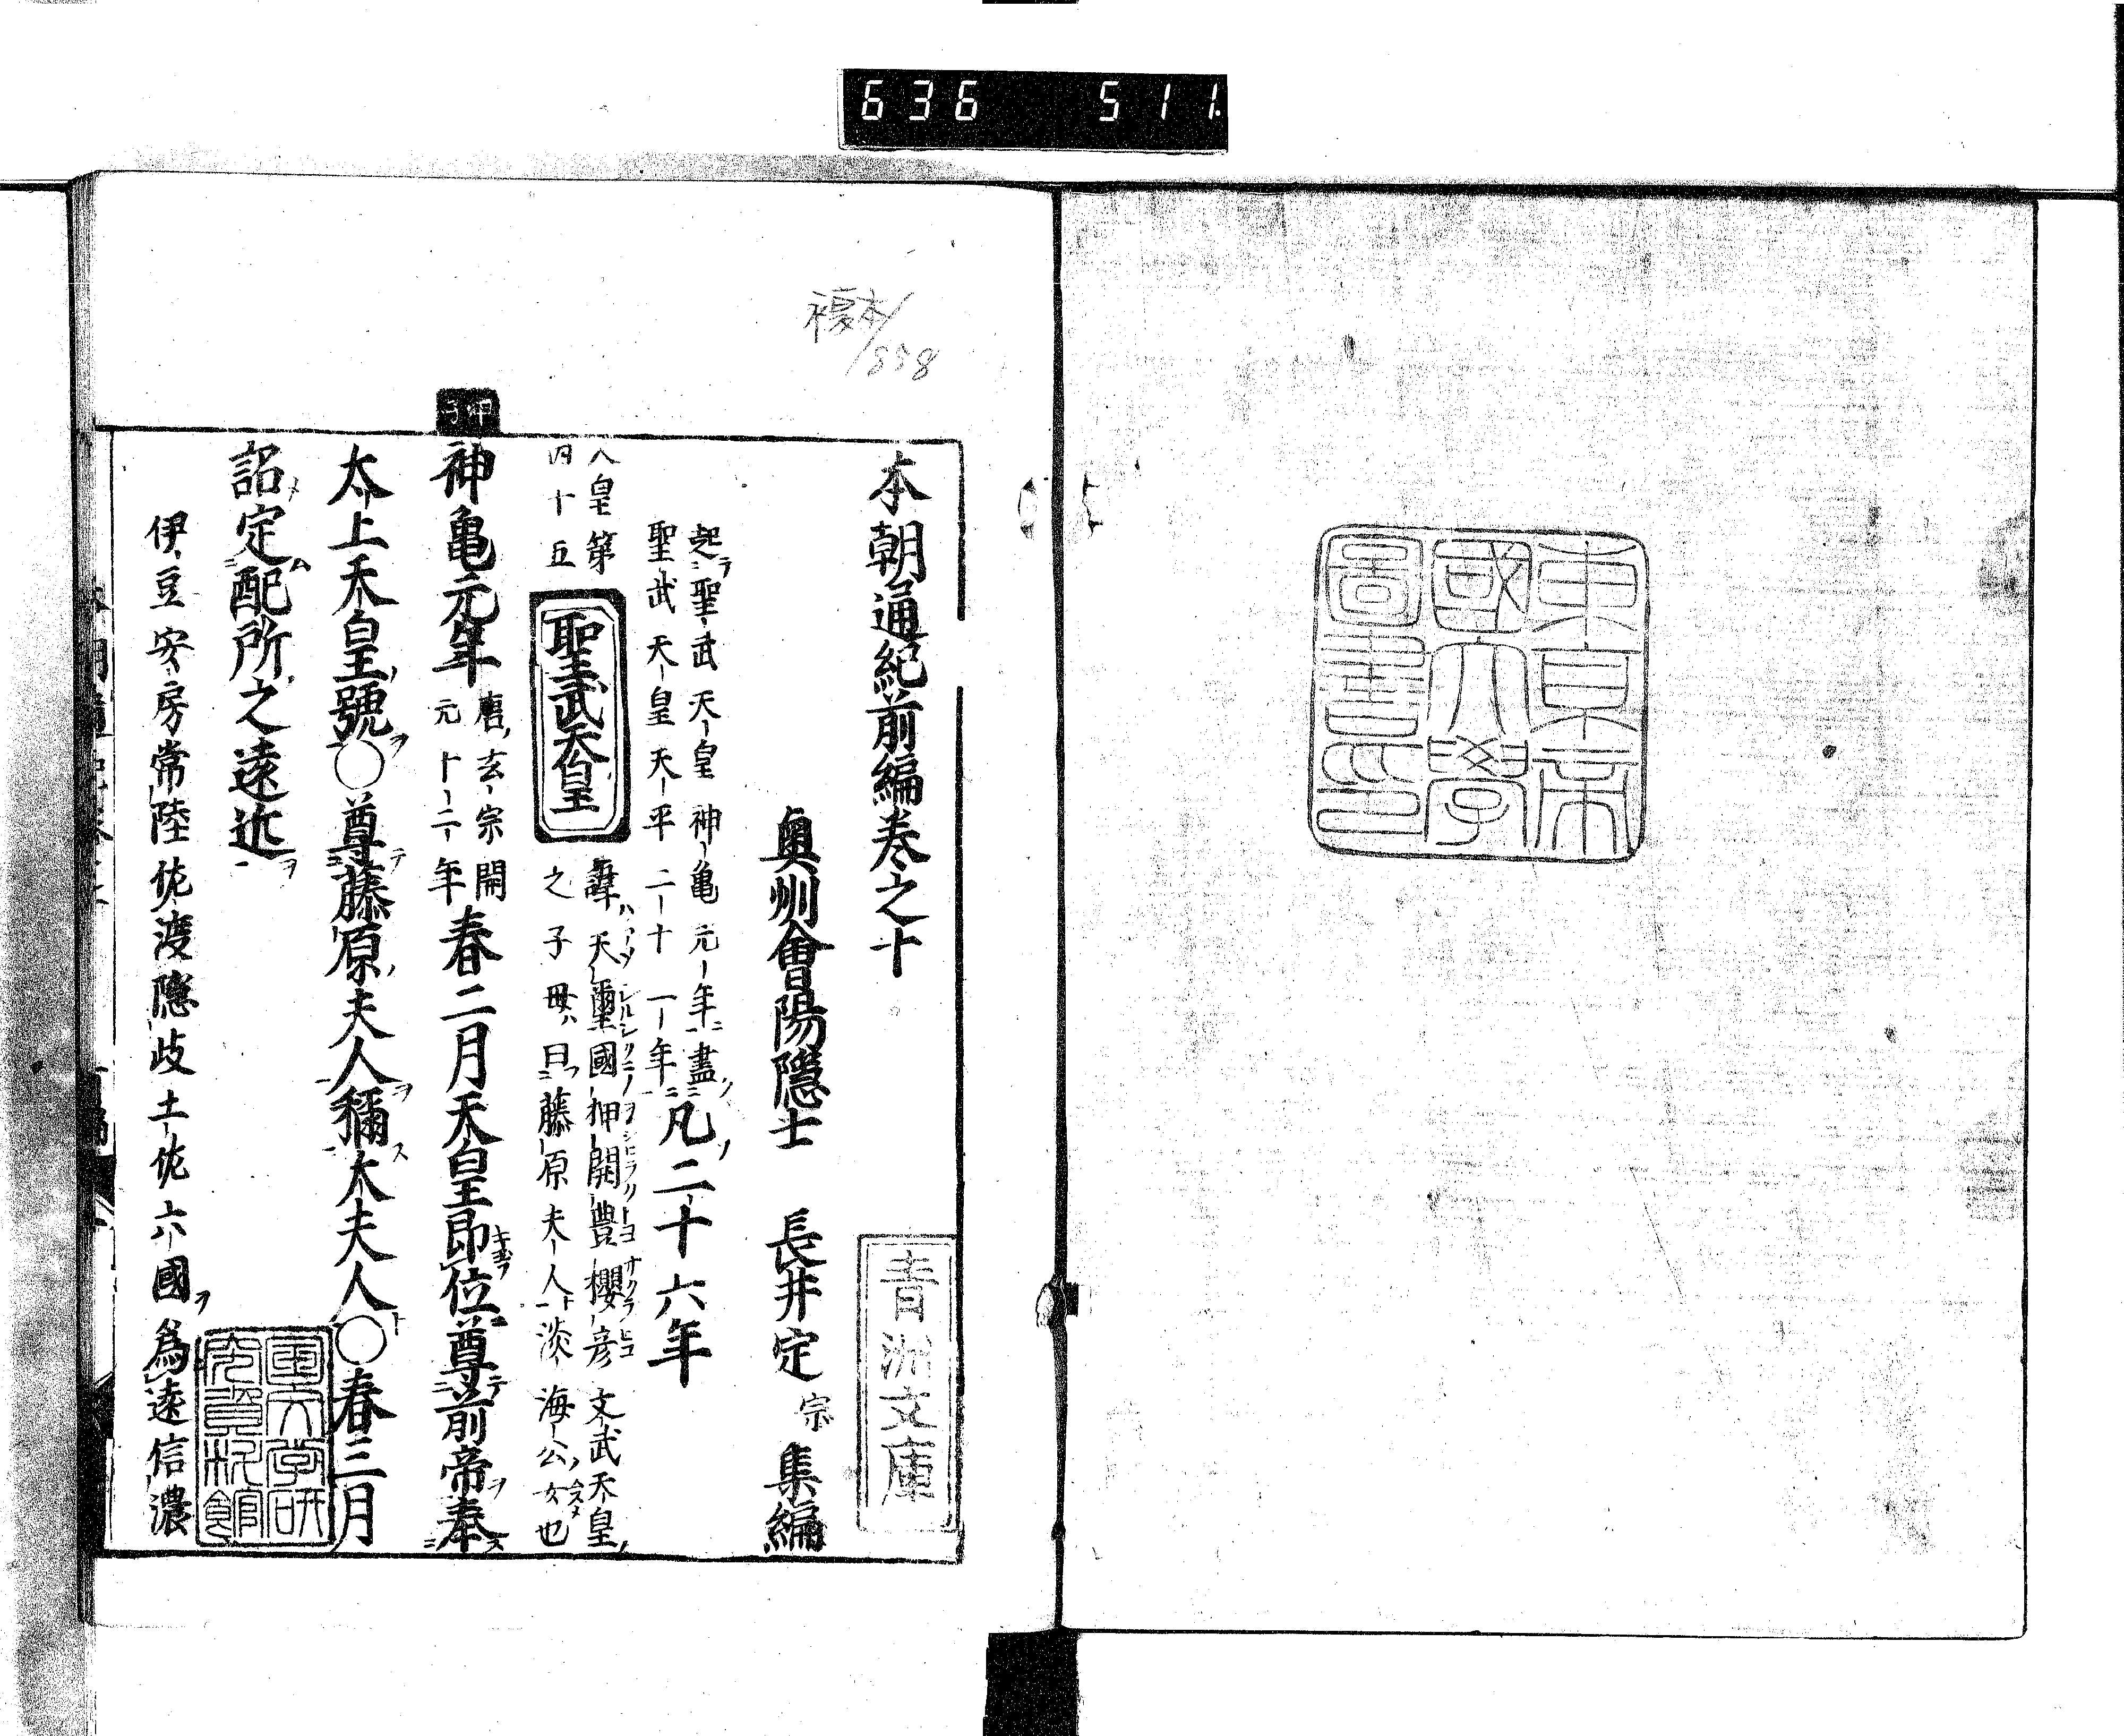 636 511
複本/
/858
東京帝
國大學
圖書印
本朝通紀前編卷之十
青洲文庫
奥州會陽隱士 長井定宗 集編
起聖武天皇神亀元年盡
聖武天皇天平二十一年
凡二十六年
人皇第
四十五
聖武天皇
諱ハ天璽國押開豊櫻彦 文武天皇
アメシルシクニヲシヒラクトヨサクラヒコ
之子母ハ曰藤原夫人淡海公女也
甲子
神亀元年
唐玄宗開
元十二年
春二月天皇即位尊前帝奉
太上天皇號〇尊藤原夫人稱太夫人〇春三月
詔定配所之遠近
伊豆安房常陸佐渡隱岐土佐六國爲遠信濃
國文学研
究資料館